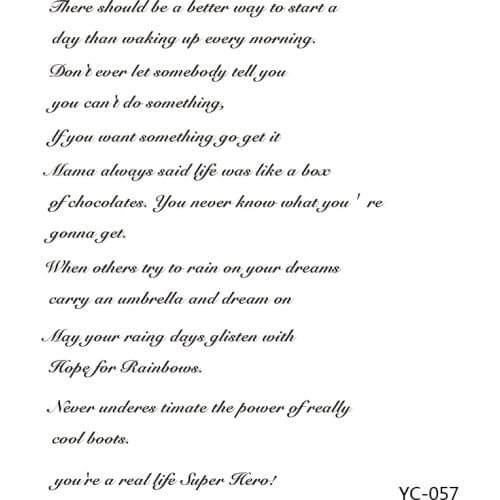 There should be a better way to start a
day than waking up every morning.
Don't ever let somebody tell you
you can't do something,
If you want something go get it
Mama always said life was like a box
of chocolates. You never know what you ' re
gonna get.
When others try to rain on your dreams
carry an umbrella and dream on
May your raing days glisten with
Hope for Rainbows.
Never underes timate the power of really
cool boots.
you're a real life Super Hero!
YC-057